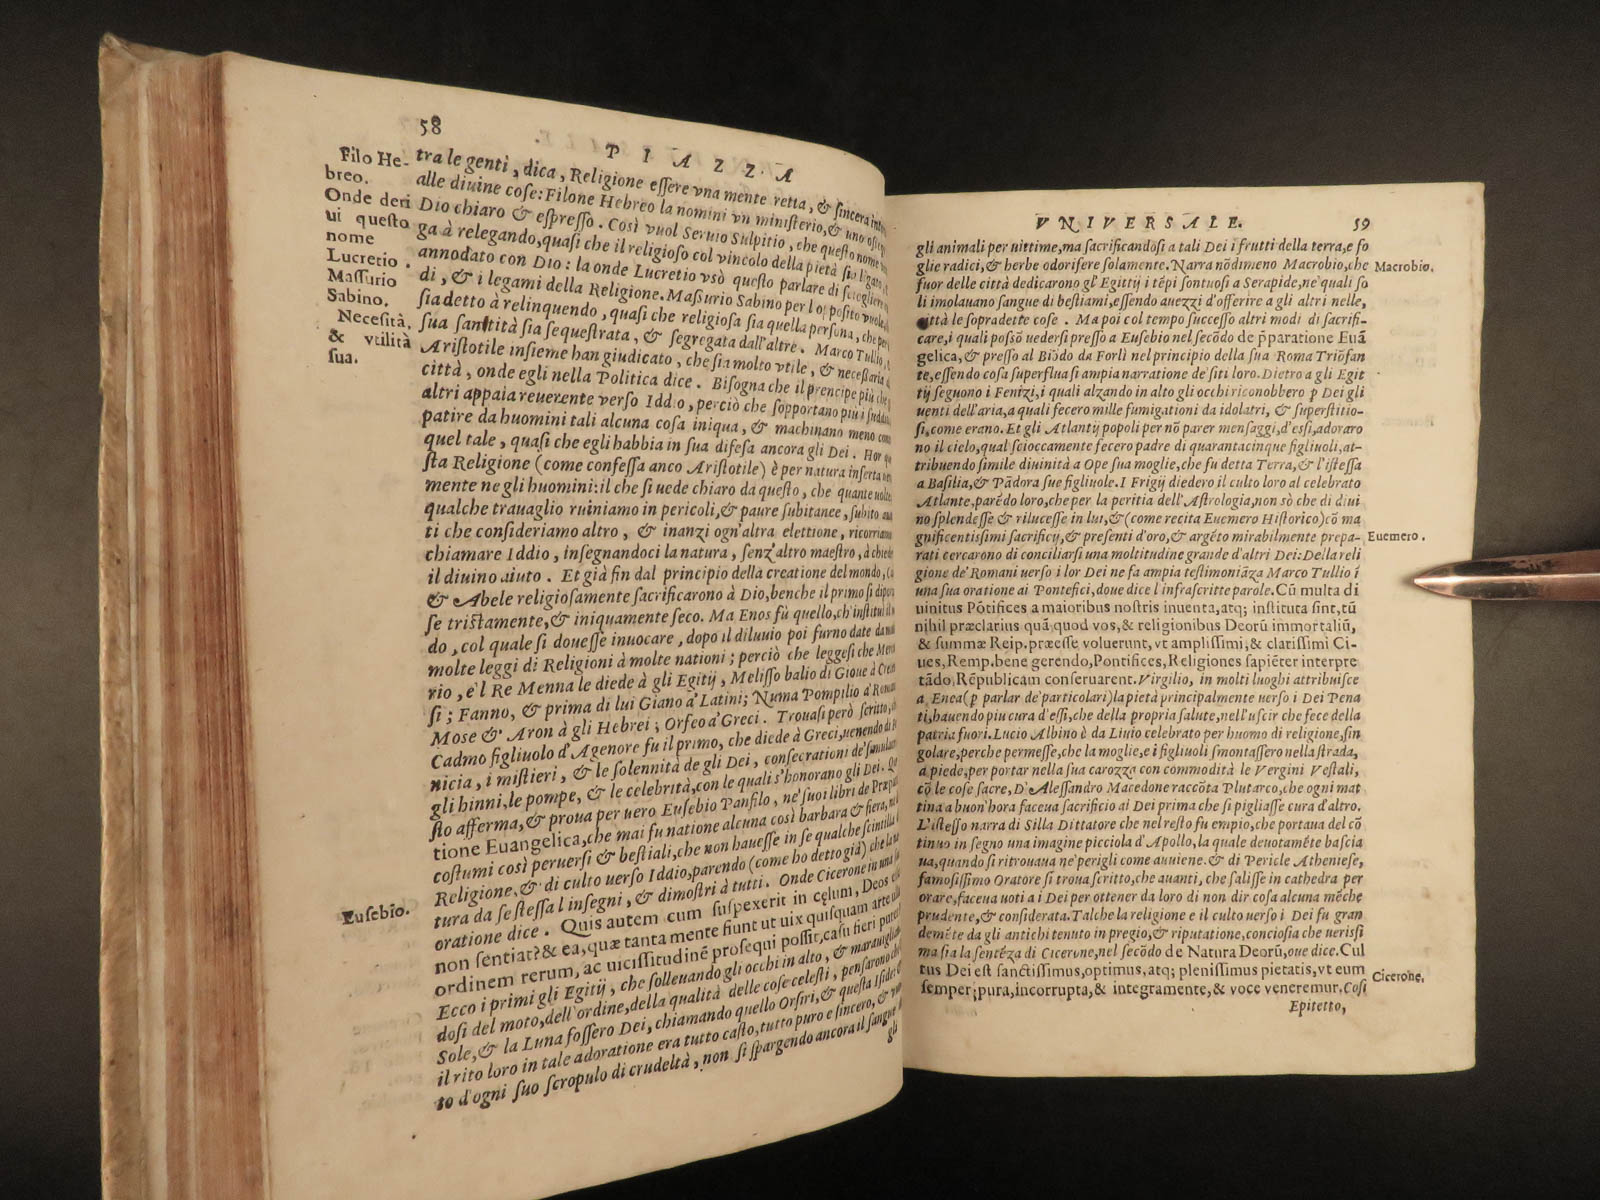 58
PIAZZA
Filo He-
breo.
Onde deri
ui questo
nome
Lucretio.
Maſſurio
Sabino.
Neceſità,
& vtilità
ſua.
Euſebio.
tra le genti, dica, Religione eſſere vna mente retta, & ſincera
alle diuine coſe: Filone Hebreo la nomini vn miniſterio, & uno
Dio chiaro & eſpreſſo. Così vuol Seruio Sulpitio, che queſto nome
ga à relegando, quaſi che il religioſo col vincolo della pietà ſia ligato,
annodato con Dio: la onde Lucretio vsò queſto parlare di ſciogliere
di, & i legami della Religione. Maſſurio Sabino per l'oppoſito vuole,
ſia detto à relinquendo, quaſi che religioſa ſia quella perſona, che per
ſua ſantità ſia ſequeſtrata, & ſegregata dall'altre. Marco Tullio,
Ariſtotile inſieme han giudicato, che ſia molto vtile, & neceſſaria
città, onde egli nella Politica dice. Biſogna che il prencipe più che
altri appaia reuerente verſo Iddio, perciò che ſopportano più i ſudditi
patire da huomini tali alcuna coſa iniqua, & machinano meno
quel tale, quaſi che egli habbia in ſua difeſa ancora gli Dei. Hor
ſta Religione (come confeſſa anco Ariſtotile) è per natura inſerta
mente ne gli huomini: il che ſi uede chiaro da queſto, che quante uolte
qualche trauaglio ruiniamo in pericoli, & paure ſubitance, ſubito
ti che conſideriamo altro, & inanzi ogn'altra elettione, ricorriamo
chiamare Iddio, inſegnandoci la natura, ſenz'altro maeſtro, à
il diuino aiuto. Et già fin dal principio della creatione del mondo,
& Abele religioſamente ſacrificarono à Dio, benche il primo ſi
ſe triſtamente, & iniquamente ſeco. Ma Enos fù quello, ch'inſtituì
do, col quale ſi doueſſe inuocare, dopo il diluuio poi furno date da
molte leggi di Religioni à molte nationi; perciò che leggeſi che
rio, e'l Re Menna le diede à gli Egitij, Meliſſo balio di Gioue à
ſi; Fanno, & prima di lui Giano a' Latini; Numa Pompilio a'
Mose & Aron à gli Hebrei; Orfeo a' Greci. Trouaſi però ſcritto,
Cadmo figliuolo d'Agenore fu il primo, che diede à Greci, uenendo di
nicia, i miſtieri, & le ſolennità de gli Dei, conſecrationi de'
gli hinni, le pompe, & le celebrità, con le quali s'honorano gli Dei.
ſto afferma, & proua per uero Euſebio Panfilo, ne' ſuoi libri de
tione Euangelica, che mai fu natione alcuna così barbara & fiera,
coſtumi così peruerſi & beſtiali, che non haueſſe in ſe qualche ſcintilla
Religione, & di culto uerſo Iddio, parendo (come ho detto già) che la
tura da ſe ſteſſa l'inſegni, & dimoſtri à tutti. Onde Cicerone in una
oratione dice. Quis autem cum ſuſpexerit in cęlum, Deos
non ſentiat? & ea, quæ tanta mente fiunt ut uix quiſquam arte
ordinem rerum, ac uiciſſitudinē proſequi poſſit, caſu fieri
Ecco i primi gli Egitij, che ſolleuando gli occhi in alto, &
doſi del moto, dell'ordine, della qualità delle coſe celeſti, penſarono
Sole, & la Luna foſſero Dei, chiamando quello Orſiri, & queſta
il rito loro in tale adoratione era tutto caſto, tutto puro e ſincero, &
to d'ogni ſuo ſcropulo di crudeltà, non ſi ſpargendo ancora il ſangue
gli
VNIVERSALE.
59
gli animali per uittime, ma ſacrificandoſi a tali Dei i frutti della terra, e fo
glie radici, & herbe odorifere ſolamente. Narra nōdimeno Macrobio, che
fuor delle città dedicarono gl'Egittij i tēpi ſontuoſi a Serapide, ne' quali ſo
li imolauano ſangue di beſtiami, eſſendo auezzi d'offerire a gli altri nelle,
città le ſopradette coſe. Ma poi col tempo ſucceſſo altri modi di ſacrifi-
care, i quali poſſō uederſi preſſo a Euſebio nel ſecōdo de p̄paratione Euā
gelica, & preſſo al Biōdo da Forlì nel principio della ſua Roma Triōfan
te, eſſendo coſa ſuperflua ſi ampia narratione de' riti loro. Dietro a gli Egit
tij ſeguono i Fenizi, i quali alzando in alto gli occhi riconobbero p Dei gli
uenti dell'aria, a quali fecero mille fumigationi da idolatri, & ſuperſtitio-
ſi, come erano. Et gli Atlantij popoli per nō parer menſaggi, d'eſſi, adoraro
no il cielo, qual ſcioccamente fecero padre di quarantacinque figliuoli, at-
tribuendo ſimile diuinità a Ope ſua moglie, che fu detta Terra, & l'iſteſſa
a Baſilia, & Pādora ſue figliuole. I Frigij diedero il culto loro al celebrato
Atlante, parēdo loro, che per la peritia dell'Aſtrologia, non sò che di diui
no ſplendeſſe & riluceſſe in lui, & (come recita Euemero Hiſtorico) cō ma
gnificentiſſimi ſacrificij, & preſenti d'oro, & argēto mirabilmente prepa-
rati cercarono di conciliarſi una moltitudine grande d'altri Dei: Della reli
gione de' Romani uerſo i lor Dei ne fa ampia teſtimoniāza Marco Tullio ī
una ſua oratione ai Pontefici, doue dice l'infraſcritte parole. Cū multa di
uinitus Pōtifices a maioribus noſtris inuenta, atq; inſtituta ſint, tū
nihil præclarius quā, quod vos, & religionibus Deorū immortaliū,
& ſummæ Reip. præeſſe voluerunt, vt ampliſſimi, & clariſſimi Ci-
ues, Remp. bene gerendo, Pontifices, Religiones ſapiēter interpre
tādo, Rēpublicam conſeruarent. Virgilio, in molti luoghi attribuiſce
a Enea (p parlar de' particolari) la pietà principalmente uerſo i Dei Pena
ti, hauendo piu cura d'eſſi, che della propria ſalute, nell'uſcir che fece della
patria fuori. Lucio Albino è da Liuio celebrato per huomo di religione, ſin
golare, perche permeſſe, che la moglie, e i figliuoli ſmontaſſero nella ſtrada,
a piede, per portar nella ſua carozza con commodità le Vergini Veſtali,
cō le coſe ſacre, D'Aleſſandro Macedone raccōta Plutarco, che ogni mat
tina a buon'hora faceua ſacrificio ai Dei prima che ſi pigliaſſe cura d'altro.
L'iſteſſo narra di Silla Dittatore che nel reſto fu empio, che portaua del cō
tinuo in ſegno una imagine picciola d'Apollo, la quale deuotamēte baſcia
ua, quando ſi ritrouaua ne' perigli come auuiene. & di Pericle Athenieſe,
famoſiſſimo Oratore ſi troua ſcritto, che auanti, che ſaliſſe in cathedra per
orare, faceua uoti a i Dei per ottener da loro di non dir coſa alcuna mēche
prudente, & conſiderata. Talche la religione e il culto uerſo i Dei fu gran
demēte da gli antichi tenuto in pregio, & riputatione, concioſia che ueriſſi
ma ſia la ſentēza di Cicerone, nel ſecōdo de Natura Deorū, oue dice. Cul
tus Dei eſt ſanctiſſimus, optimus, atq; pleniſſimus pietatis, vt eum
ſemper; pura, incorrupta, & integramente, & voce veneremur. Coſi
Epitetto,
Macrobio.
Euemero.
Cicerone,